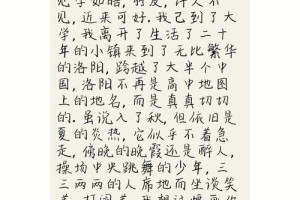 见字如晤,朋友,许久不
见,近来可好.我已到了大
学,我离开了生活了二十
年的小镇来到了无比繁华
的洛阳,跨越了大半个中
国,洛阳不再是高中地图
上的地名,而是真真切切
的.虽说入了秋,但依旧是
夏的炎热,它似乎不着急
走,傍晚的晚霞还是醉人,
操场中央跳舞的少年,三
三两两的人席地而坐谈笑